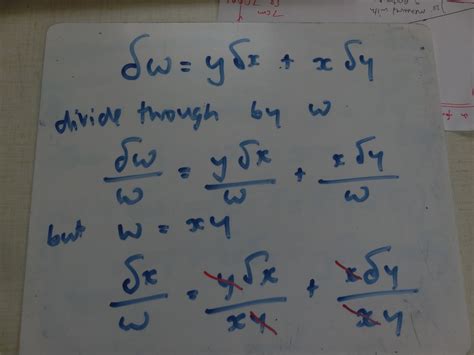 δw = yδx + xδy
divide through by w
δw/w = yδx/w + xδy/w
but w = xy
δx/w = yδx/xy + xδy/xy
7cm